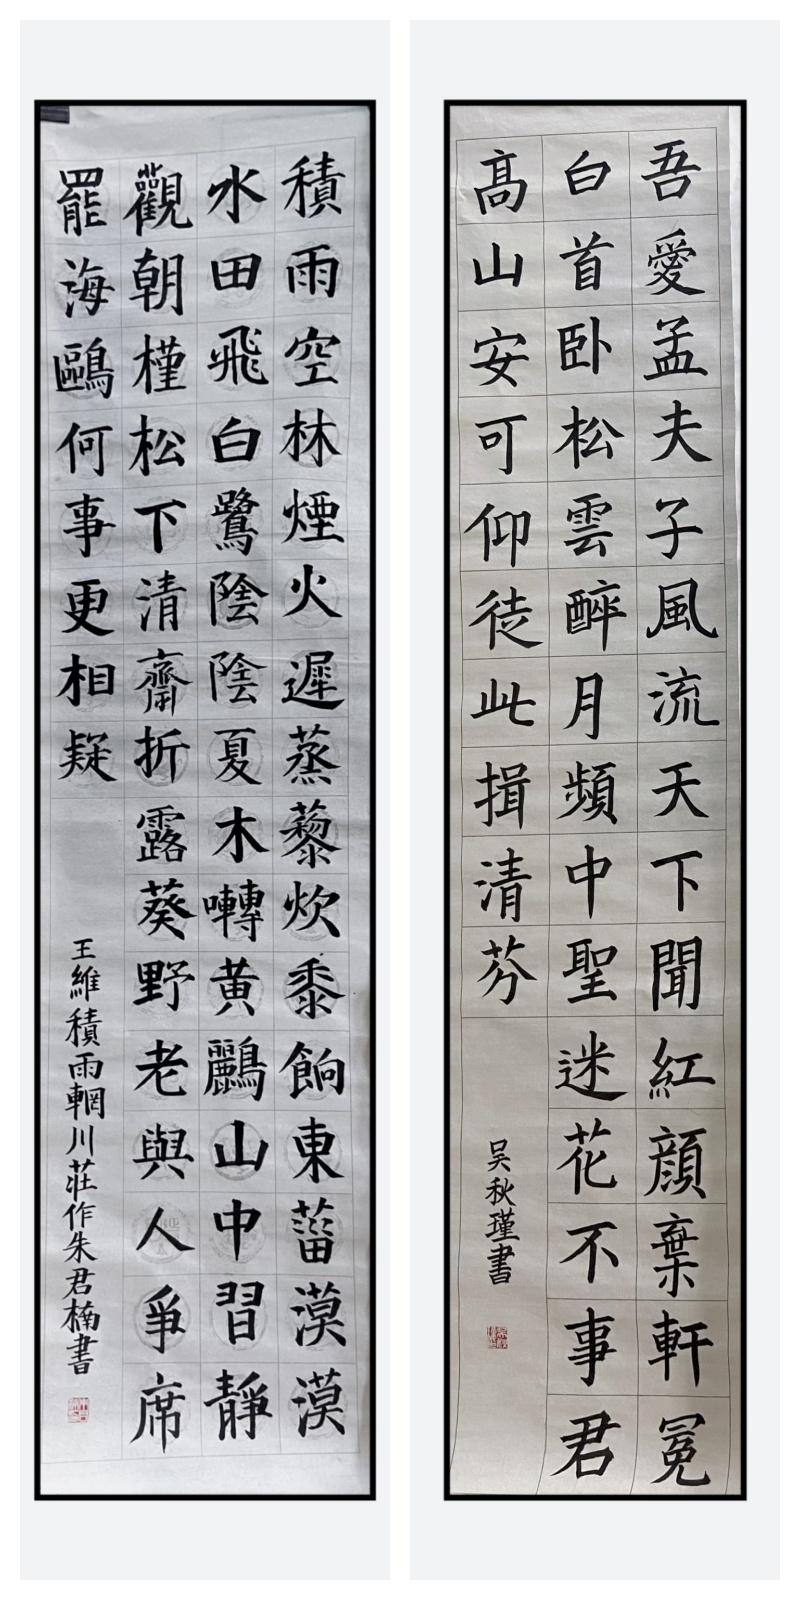 積雨空林煙火遲蒸藜炊黍餉東菑漠漠
水田飛白鷺陰陰夏木囀黄鸝山中習靜
觀朝槿松下清齋折露葵野老與人爭席
罷海鷗何事更相疑
王維積雨輞川莊作朱君楠書
吾愛孟夫子風流天下聞紅顔棄軒冕
白首卧松雲醉月頻中聖迷花不事君
髙山安可仰徒此揖清芬
吴秋瑾書